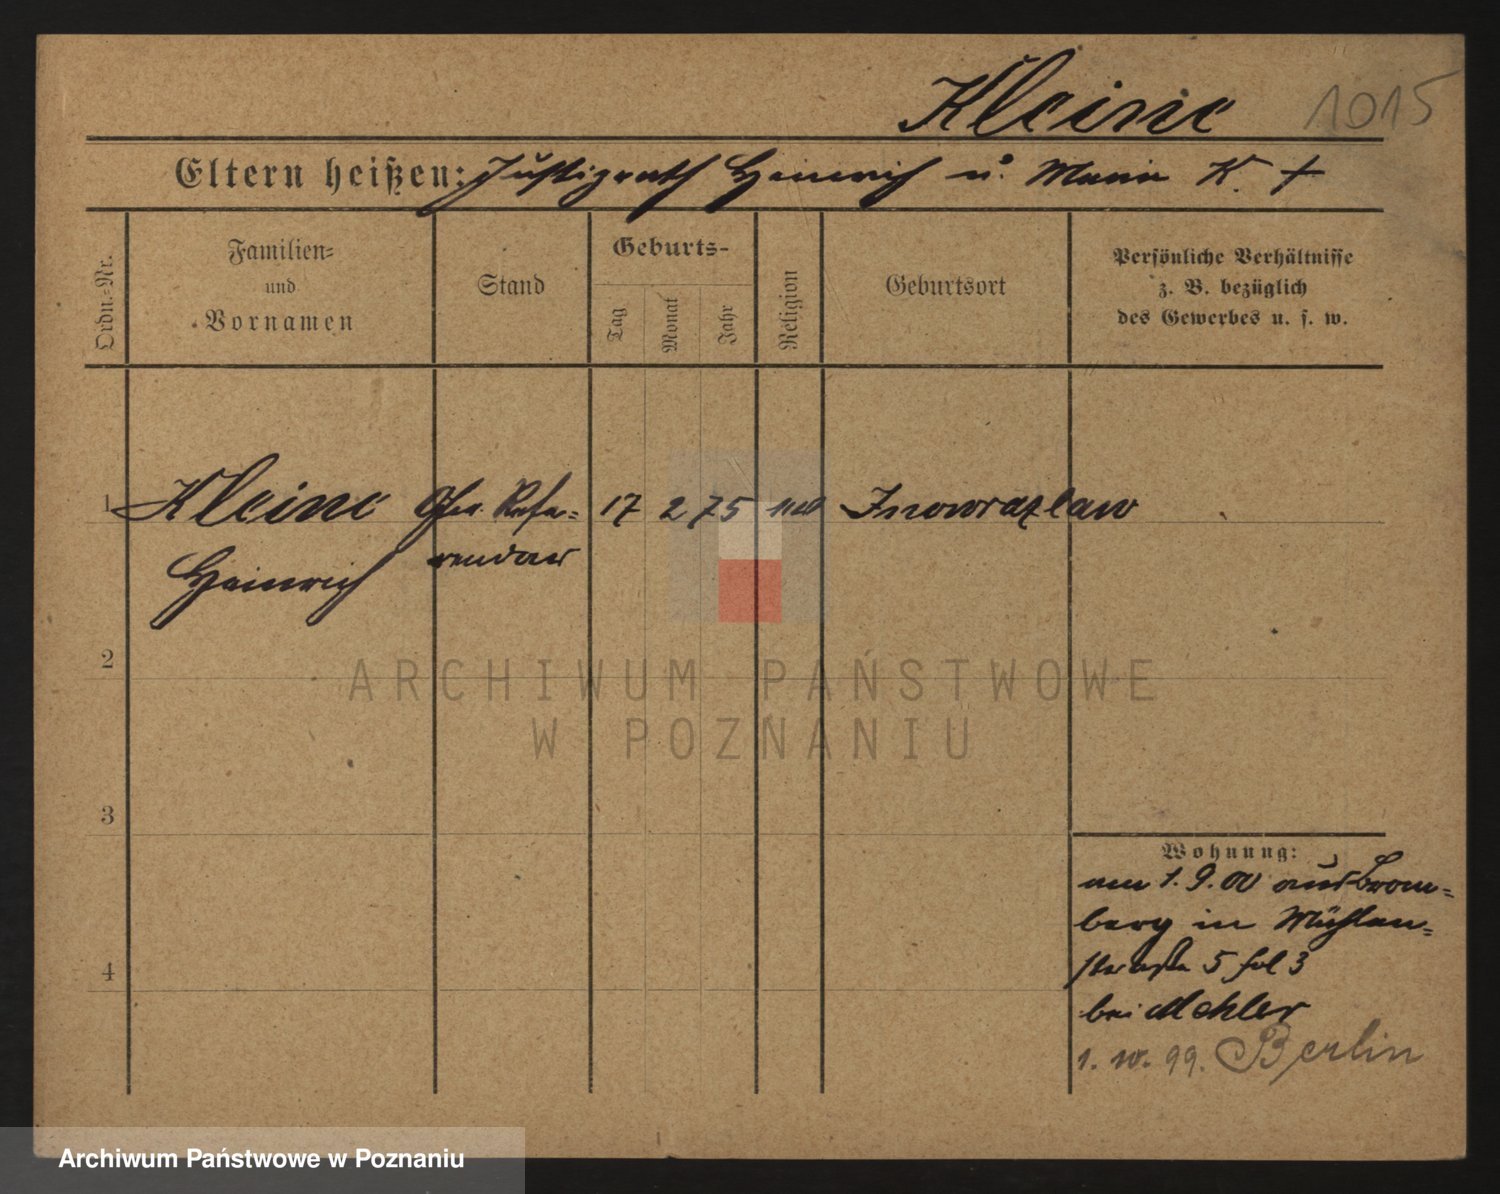 Kleine 1015
Eltern heißen: Justizrath Heinrich u. Marie K. †
Ordn.-Nr.
Familien-
und
Vornamen
Stand
Geburts-
Tag
Monat
Jahr
Religion
Geburtsort
Persönliche Verhältnisse
z. B. bezüglich
des Gewerbes u. s. w.
1 Kleine Refe- 17 2 75 Inowrazlaw
Heinrich rendar
2
ARCHIWUM PAŃSTWOWE
W POZNANIU
3
Wohnung:
am 1. 9. 00 aus Brom-
berg in Mühlen-
straße 5 3
bei Mehler
4
1. 10. 99. Berlin
Archiwum Państwowe w Poznaniu